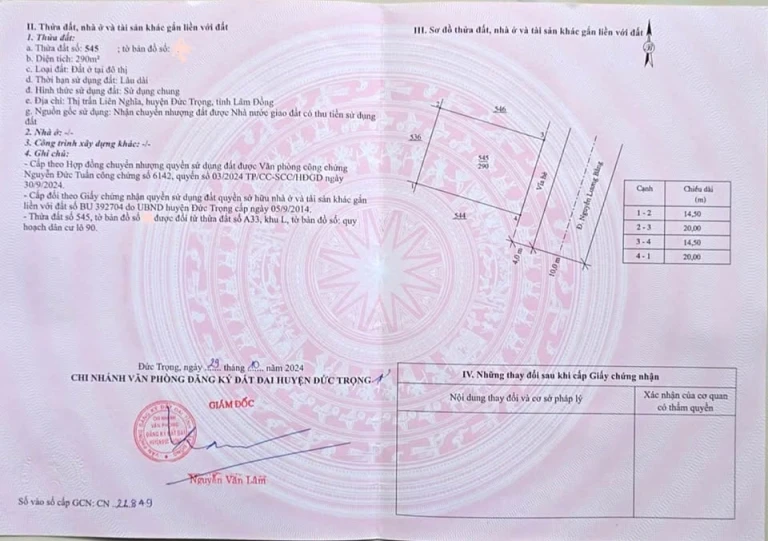 II. Thửa đất, nhà ở và tài sản khác gắn liền với đất
1. Thửa đất:
a. Thửa đất số: 545 ; tờ bản đồ số:
b. Diện tích: 290m²
c. Loại đất: Đất ở tại đô thị
d. Thời hạn sử dụng đất: Lâu dài
đ. Hình thức sử dụng đất: Sử dụng chung
e. Địa chỉ: Thị trấn Liên Nghĩa, huyện Đức Trọng, tỉnh Lâm Đồng
g. Nguồn gốc sử dụng: Nhận chuyển nhượng đất được Nhà nước giao đất có thu tiền sử dụng
đất
2. Nhà ở: -/-
3. Công trình xây dựng khác: -/-
4. Ghi chú:
- Cấp theo Hợp đồng chuyển nhượng quyền sử dụng đất được Văn phòng công chứng
Nguyễn Đức Tuấn công chứng số 6142, quyển số 03/2024 TP/CC-SCC/HĐGD ngày
30/9/2024.
- Cấp đổi theo Giấy chứng nhận quyền sử dụng đất quyền sở hữu nhà ở và tài sản khác gắn
liền với đất số BU 392704 do UBND huyện Đức Trọng cấp ngày 05/9/2014.
- Thửa đất số 545, tờ bản đồ số được đổi từ thửa đất số A33, khu L, tờ bản đồ số: quy
hoạch dân cư lô 90.
Đức Trọng, ngày 29 tháng 10 năm 2024
CHI NHÁNH VĂN PHÒNG ĐĂNG KÝ ĐẤT ĐAI HUYỆN ĐỨC TRỌNG
GIÁM ĐỐC
Nguyễn Văn Lâm
Số vào sổ cấp GCN: CN 22849
III. Sơ đồ thửa đất, nhà ở và tài sản khác gắn liền với đất
2
546
536
3
545
290
1
544
4
Vỉa hè
Đ. Nguyễn Lương Bằng
4,0 m
10,0 m
Cạnh Chiều dài
(m)
1 - 2 14,50
2 - 3 20,00
3 - 4 14,50
4 - 1 20,00
IV. Những thay đổi sau khi cấp Giấy chứng nhận
Nội dung thay đổi và cơ sở pháp lý Xác nhận của cơ quan
có thẩm quyền